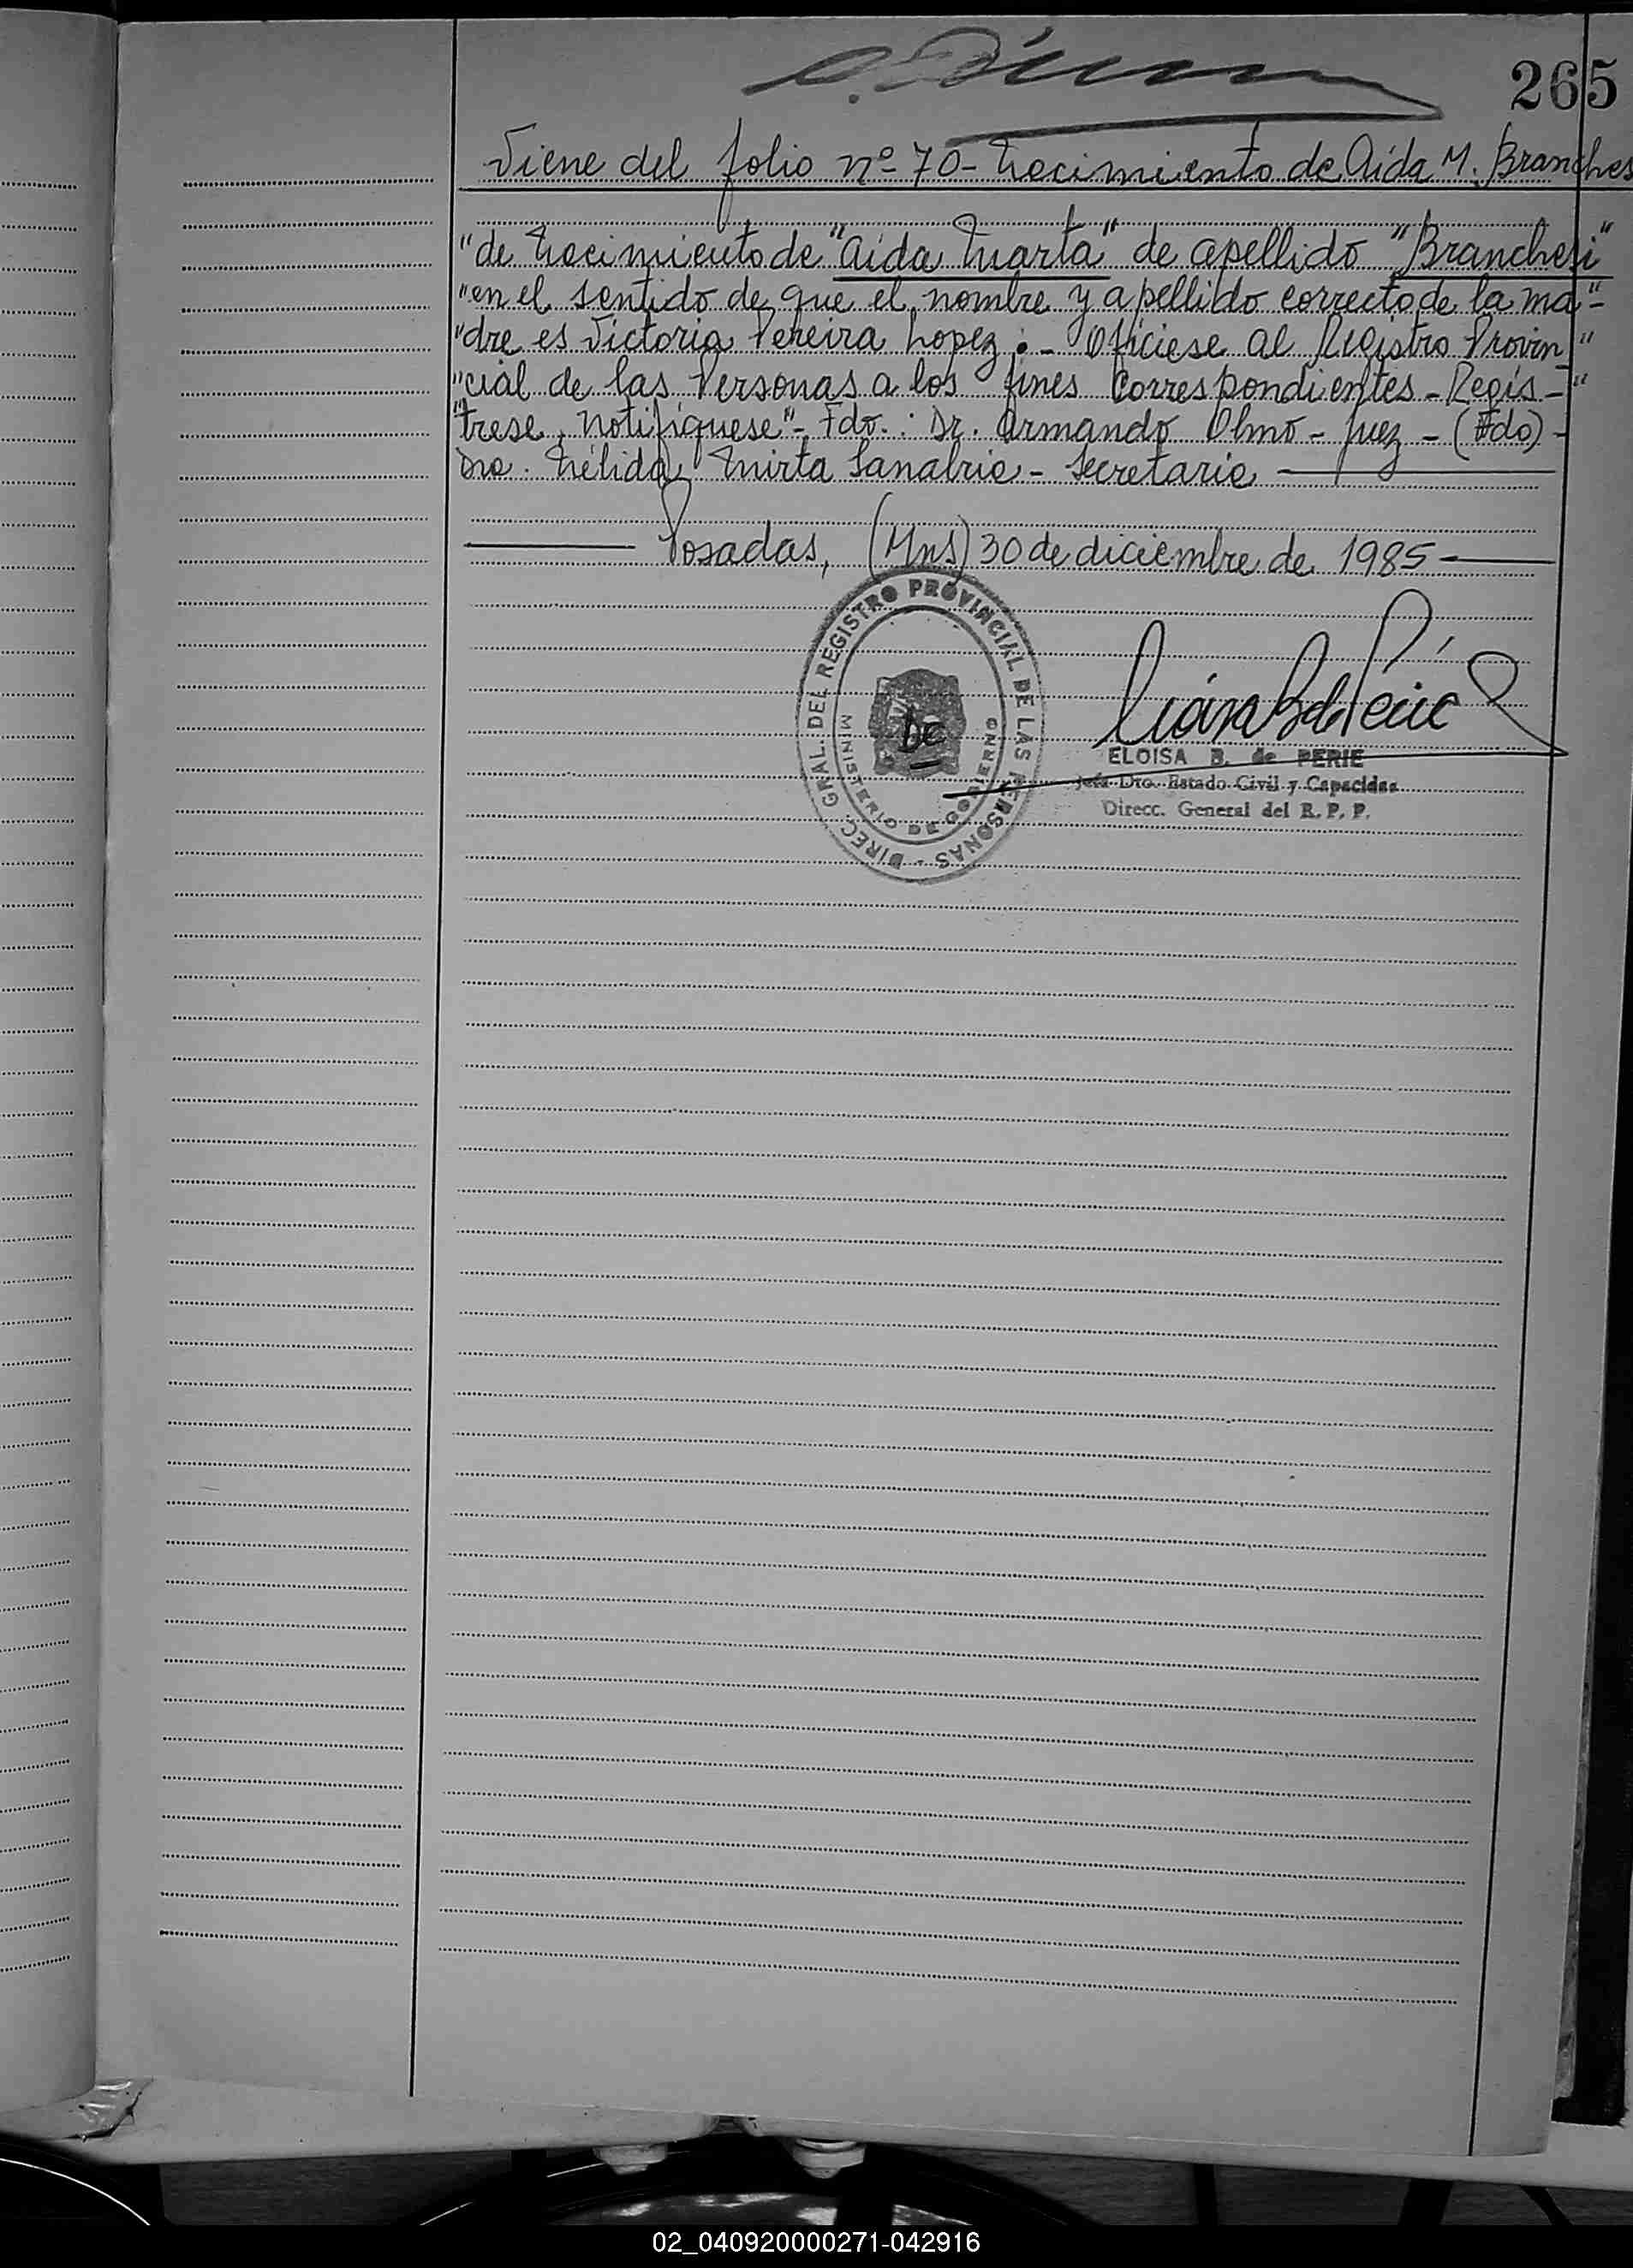 265
Viene del folio nº 70 - Nacimiento de Aída M. Branches
"de Nacimiento de "Aída Marta" de apellido "Brancheri"
"en el sentido de que el nombre y apellido correcto de la ma-"
"dre es Victoria Pereira Lopez.- Ofíciese al Registro Provin"
"cial de las Personas a los fines correspondientes - Regís-"
"trese, Notifíquese"- Fdo.: Dr. Armando Olmo - Juez - (Fdo) -
Dra. Nélida Mirta Sanabria - Secretaria
Posadas, (Mns) 30 de diciembre de 1985
DIREC. GRAL. DEL REGISTRO PROVINCIAL DE LAS PERSONAS -
MINISTERIO DE GOBIERNO
ELOISA B. de PERIE
Jefa Dto. Estado Civil y Capacidad
Direcc. General del R. P. P.
02_040920000271-042916